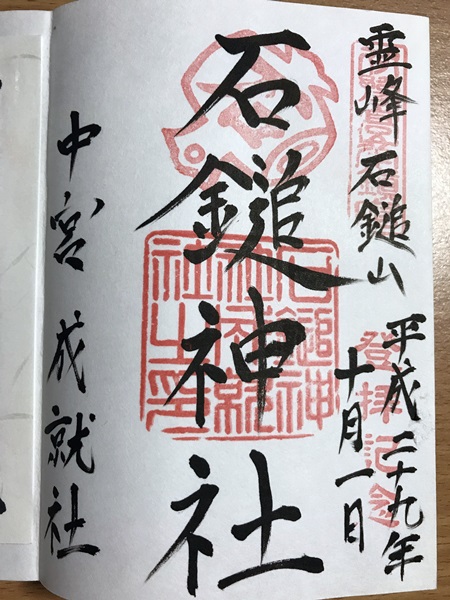 霊峰石鎚山
平成二十九年
十月一日
登拝記念
石鎚神社
中宮 成就社